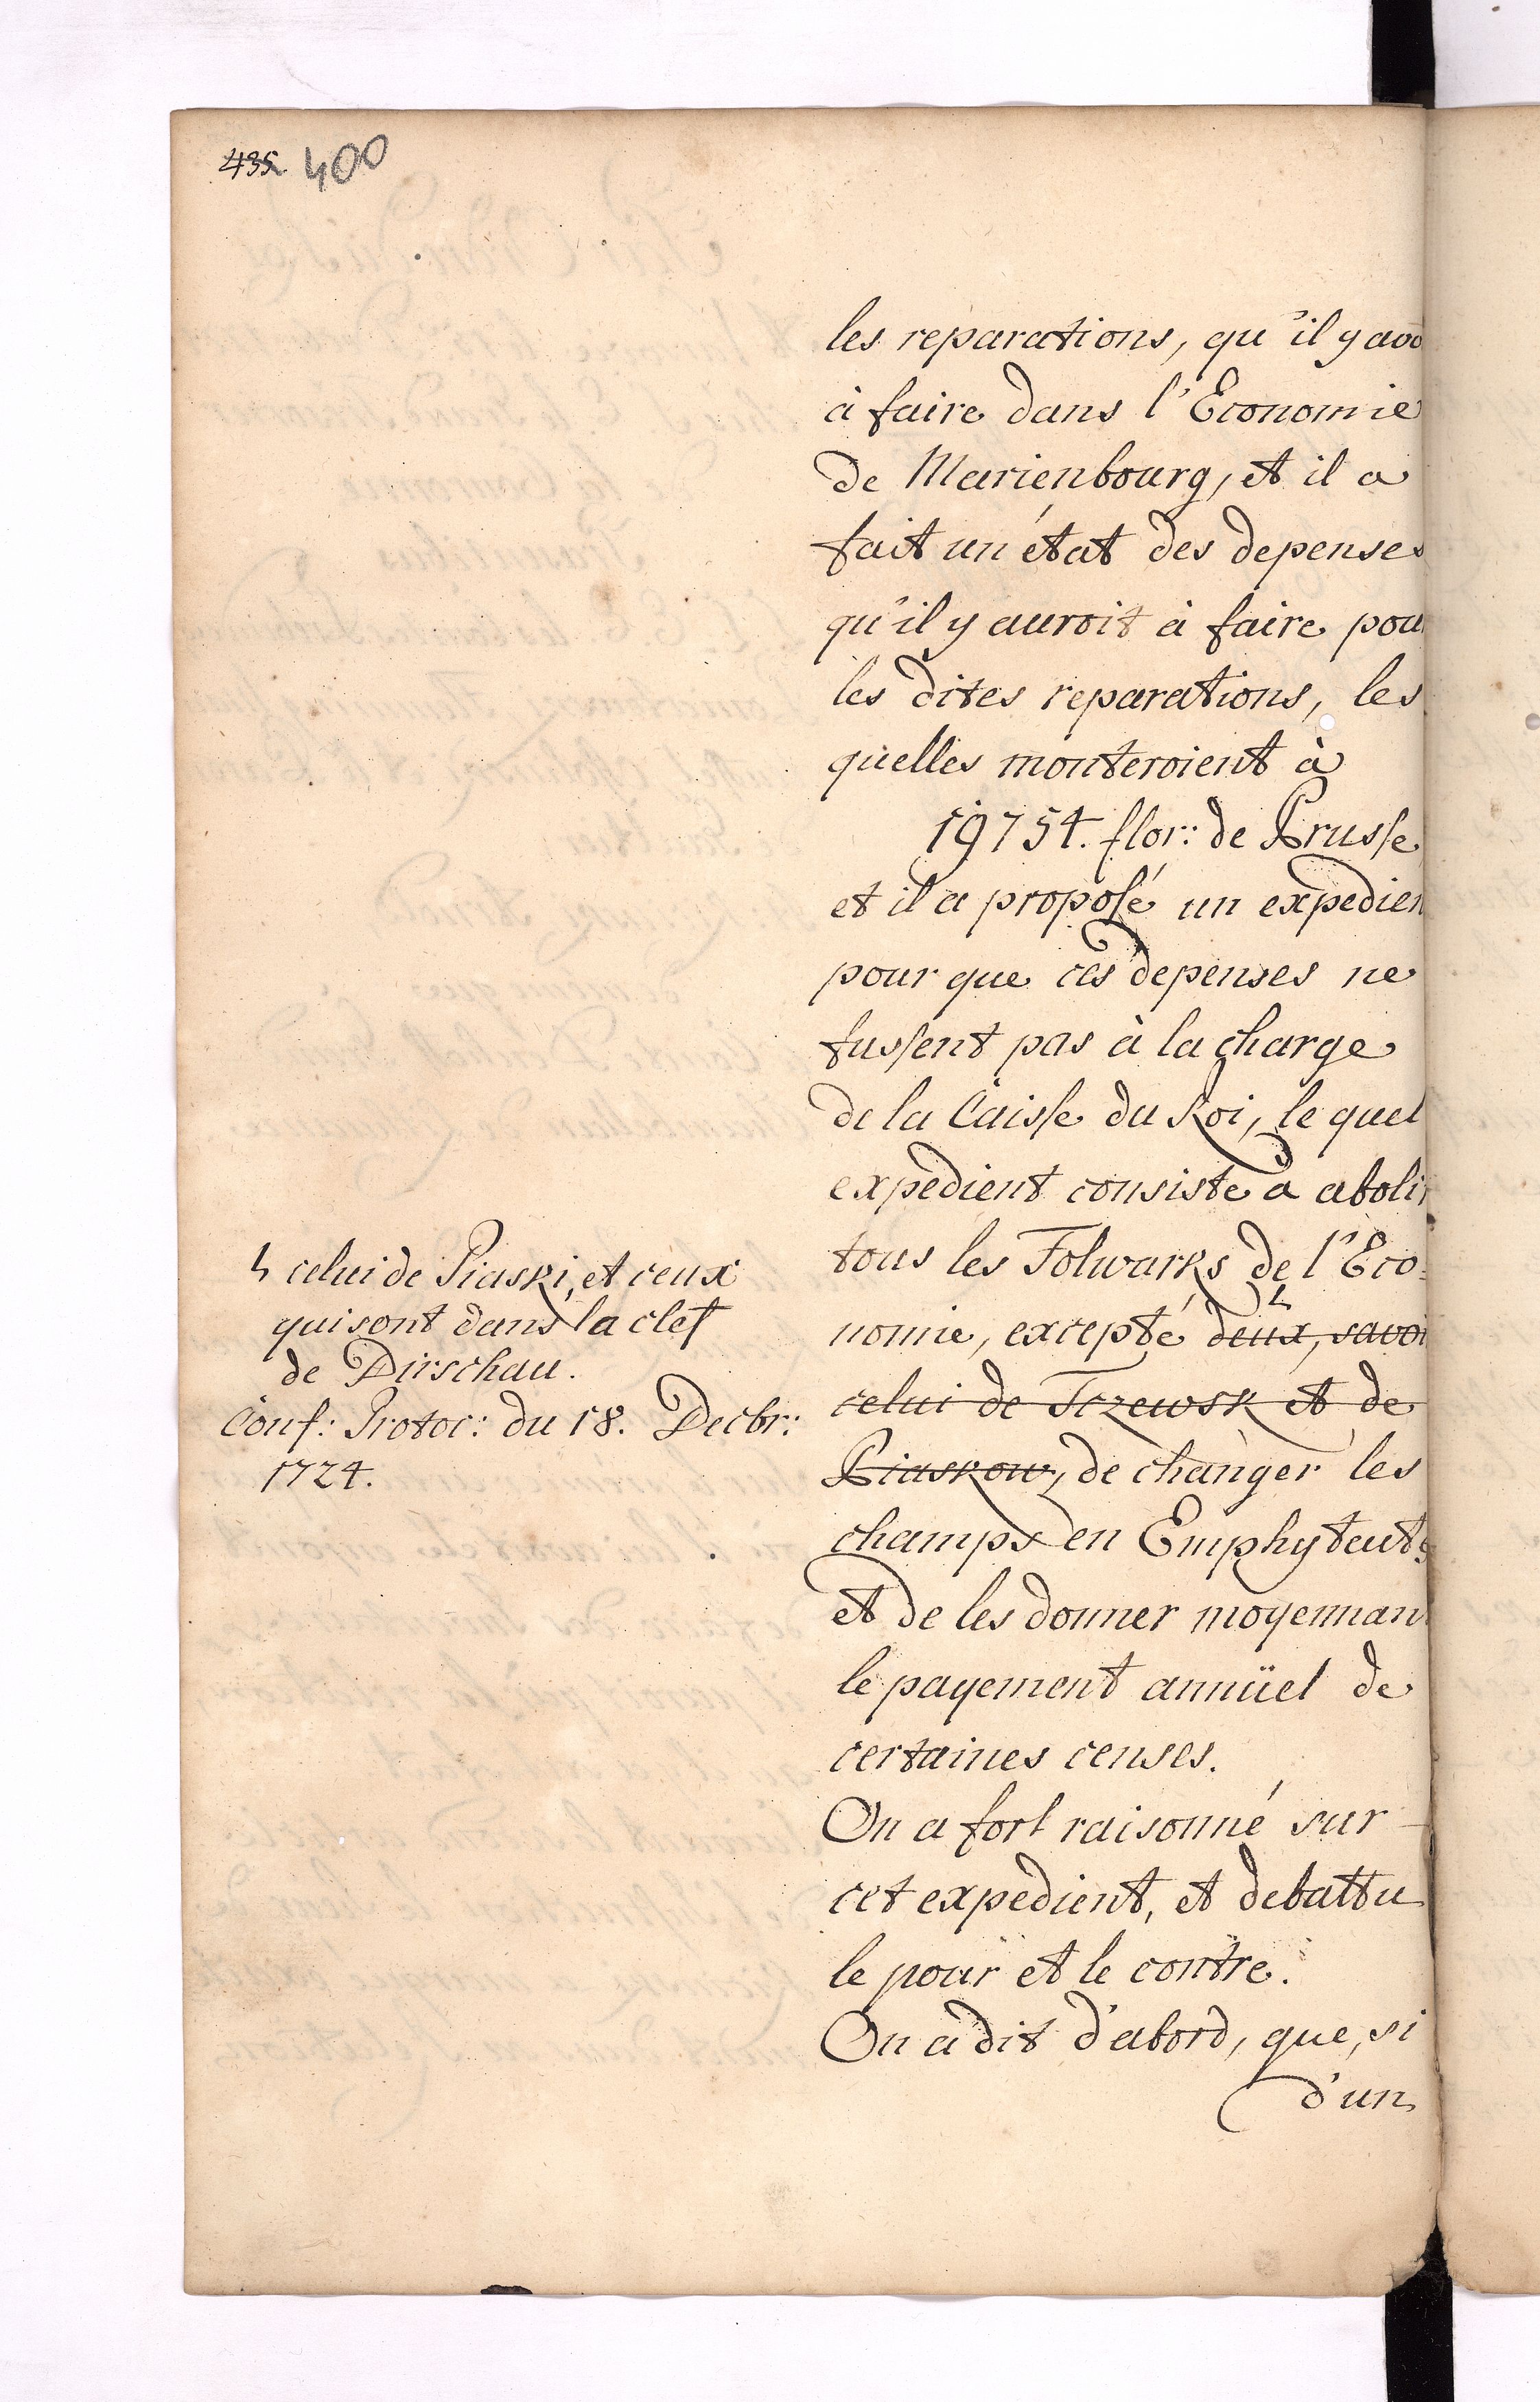 435. 400
les reparations, qu'il y avo
à faire dans l'Economie
de Marienbourg, et il a
fait un état des depenses
qu'il y auroit à faire pour
les dites reparations, les
quelles monteroient à
19754. flor: de Prusse
et il a proposé un expedien
pour que ces depenses ne
fussent pas à la charge
de la Caisse du Roi, le quel
expedient consiste à abolir
tous les Folwarks de l'Eco=
nomie, excepté deux, savoi
celui de Tczewsk et de
Piaskow, de changer les
champs en Emphyteut
et de les donner moyennan
le payement annüel de
certaines censes.
On a fort raisonné sur
cet expedient, et debattu
le pour et le contre.
On a dit d'abord, que, si
d'un
celui de Piaski, et ceux
qui sont dans la clef
de Dirschau.
Conf: Protoc: du 18. Decbr:
1724.